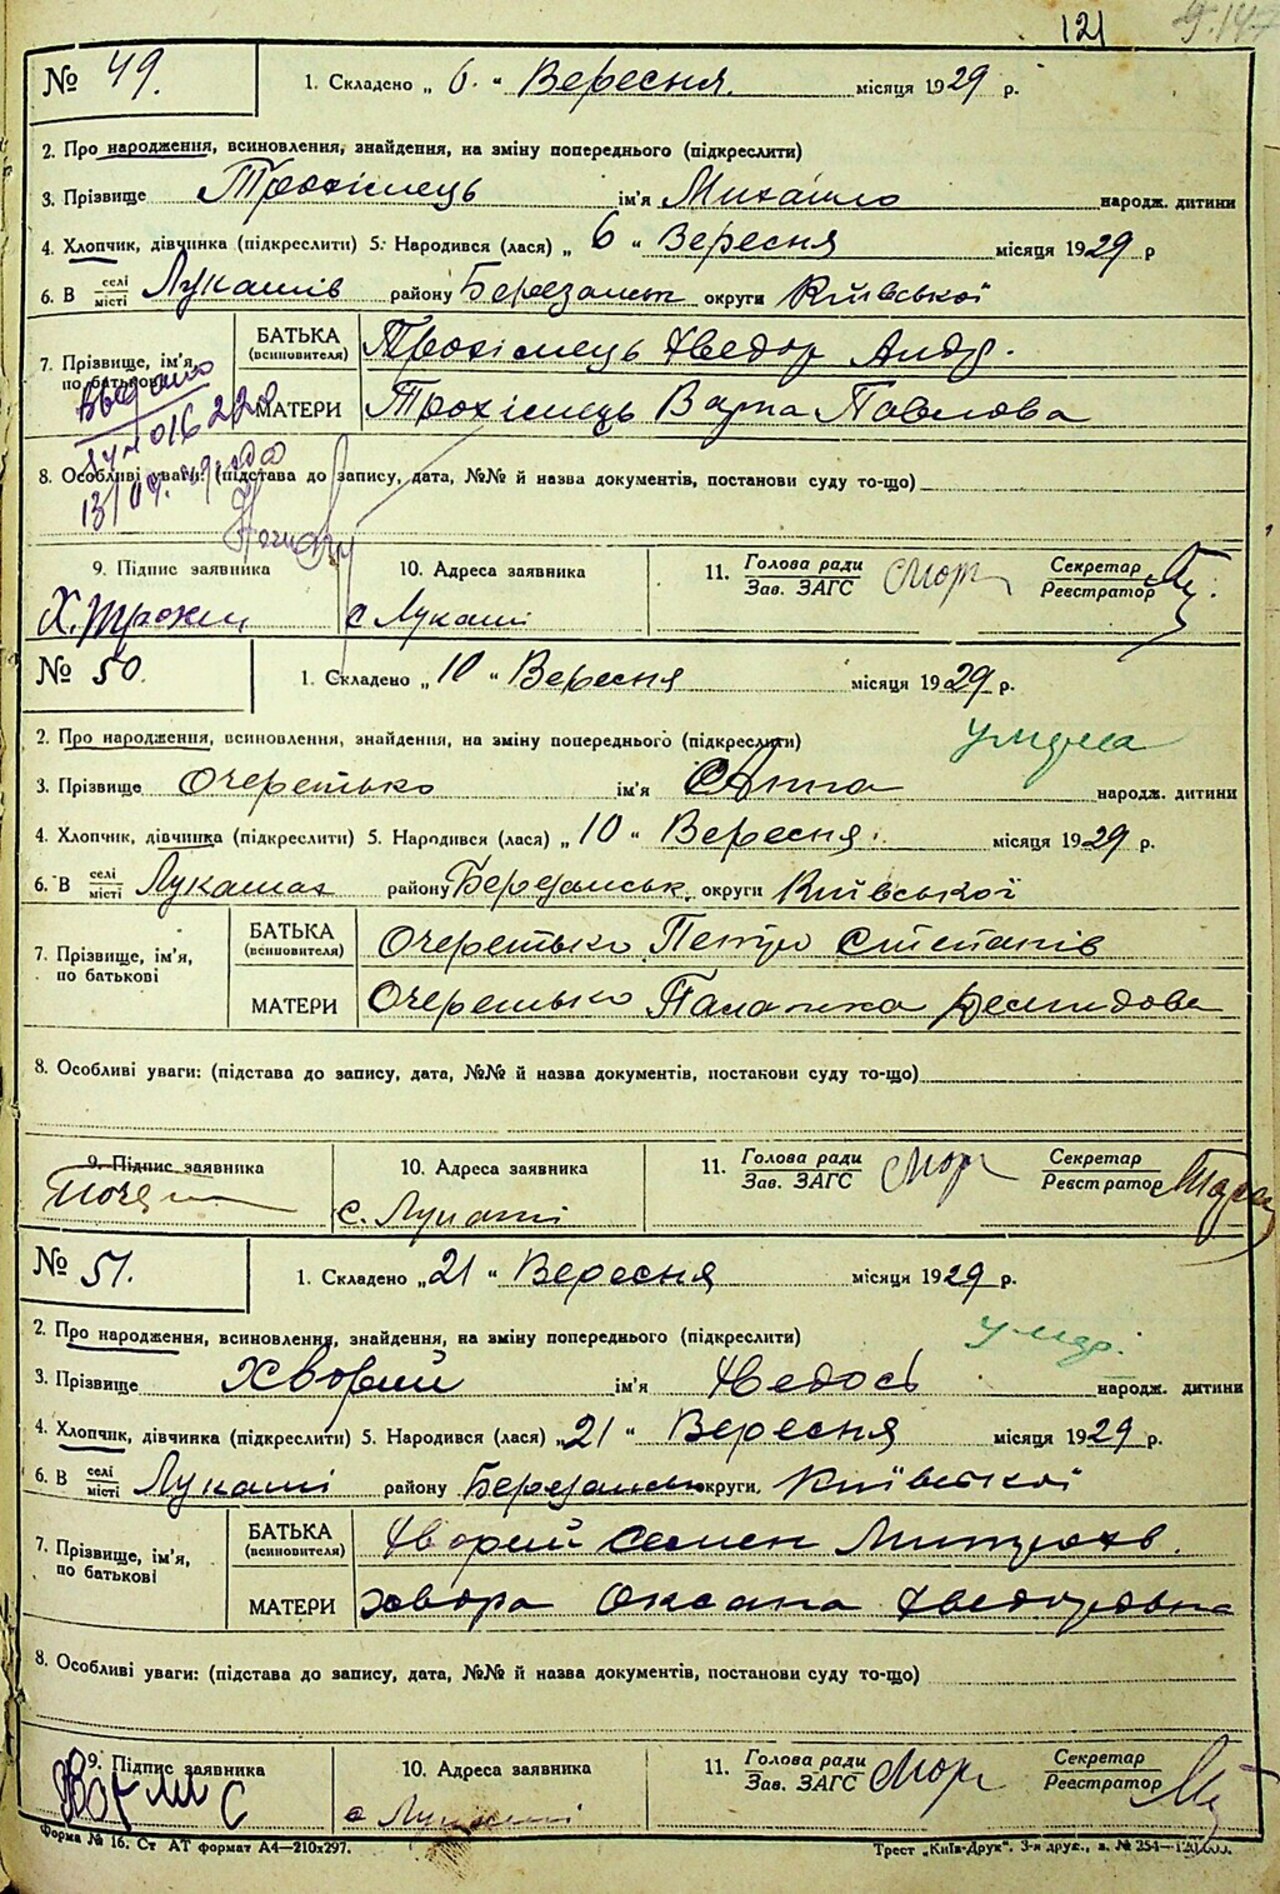 121 9.147
№ 49. 1. Складено „ 6. “ Вересня. місяця 1929 р.
2. Про народження, всиновлення, знайдення, на зміну попереднього (підкреслити)
3. Прізвище Трохімець ім'я Михайло народж. дитини
4. Хлопчик, дівчинка (підкреслити) 5. Народився (лася) „ 6 “ Вересня місяця 1929 р
6. В селі/місті Лукашів району Березанськ округи Київської
7. Прізвище, ім'я, по батькові
БАТЬКА (всиновителя) Трохімець Хведор Андр.
МАТЕРИ Трохімець Варка Павлова
8. Особливі уваги: (підстава до запису, дата, №№ й назва документів, постанови суду то-що)
9. Підпис заявника 10. Адреса заявника 11. Голова ради Секретар
Зав. ЗАГС Реєстратор
с Лукаші
№ 50. 1. Складено „ 10 “ Вересня місяця 1929 р.
2. Про народження, всиновлення, знайдення, на зміну попереднього (підкреслити)
3. Прізвище Очеретько ім'я Анна народж. дитини
4. Хлопчик, дівчинка (підкреслити) 5. Народився (лася) „ 10 “ Вересня місяця 1929 р.
6. В селі/місті Лукашах району Березанськ. округи Київської
7. Прізвище, ім'я, по батькові
БАТЬКА (всиновителя) Очеретько Петро Степанів
МАТЕРИ Очеретько Палажка Демидова
8. Особливі уваги: (підстава до запису, дата, №№ й назва документів, постанови суду то-що)
9. Підпис заявника 10. Адреса заявника 11. Голова ради Секретар
Зав. ЗАГС Реєстратор
с. Лукаші
№ 51. 1. Складено „ 21 “ Вересня місяця 1929 р.
2. Про народження, всиновлення, знайдення, на зміну попереднього (підкреслити)
3. Прізвище Хворий ім'я Хведось народж. дитини
4. Хлопчик, дівчинка (підкреслити) 5. Народився (лася) „ 21 “ Вересня місяця 1929 р.
6. В селі/місті Лукаші району Березанськ округи Київської
7. Прізвище, ім'я, по батькові
БАТЬКА (всиновителя) Хворий Семен
МАТЕРИ Хвора Оксана Хведорівна
8. Особливі уваги: (підстава до запису, дата, №№ й назва документів, постанови суду то-що)
9. Підпис заявника 10. Адреса заявника 11. Голова ради Секретар
Зав. ЗАГС Реєстратор
с Лукаші
Форма № 16. Ст АТ формат А4—210х297. Трест „Київ-Друк“. 3-я друк., з. № 254—120.000.